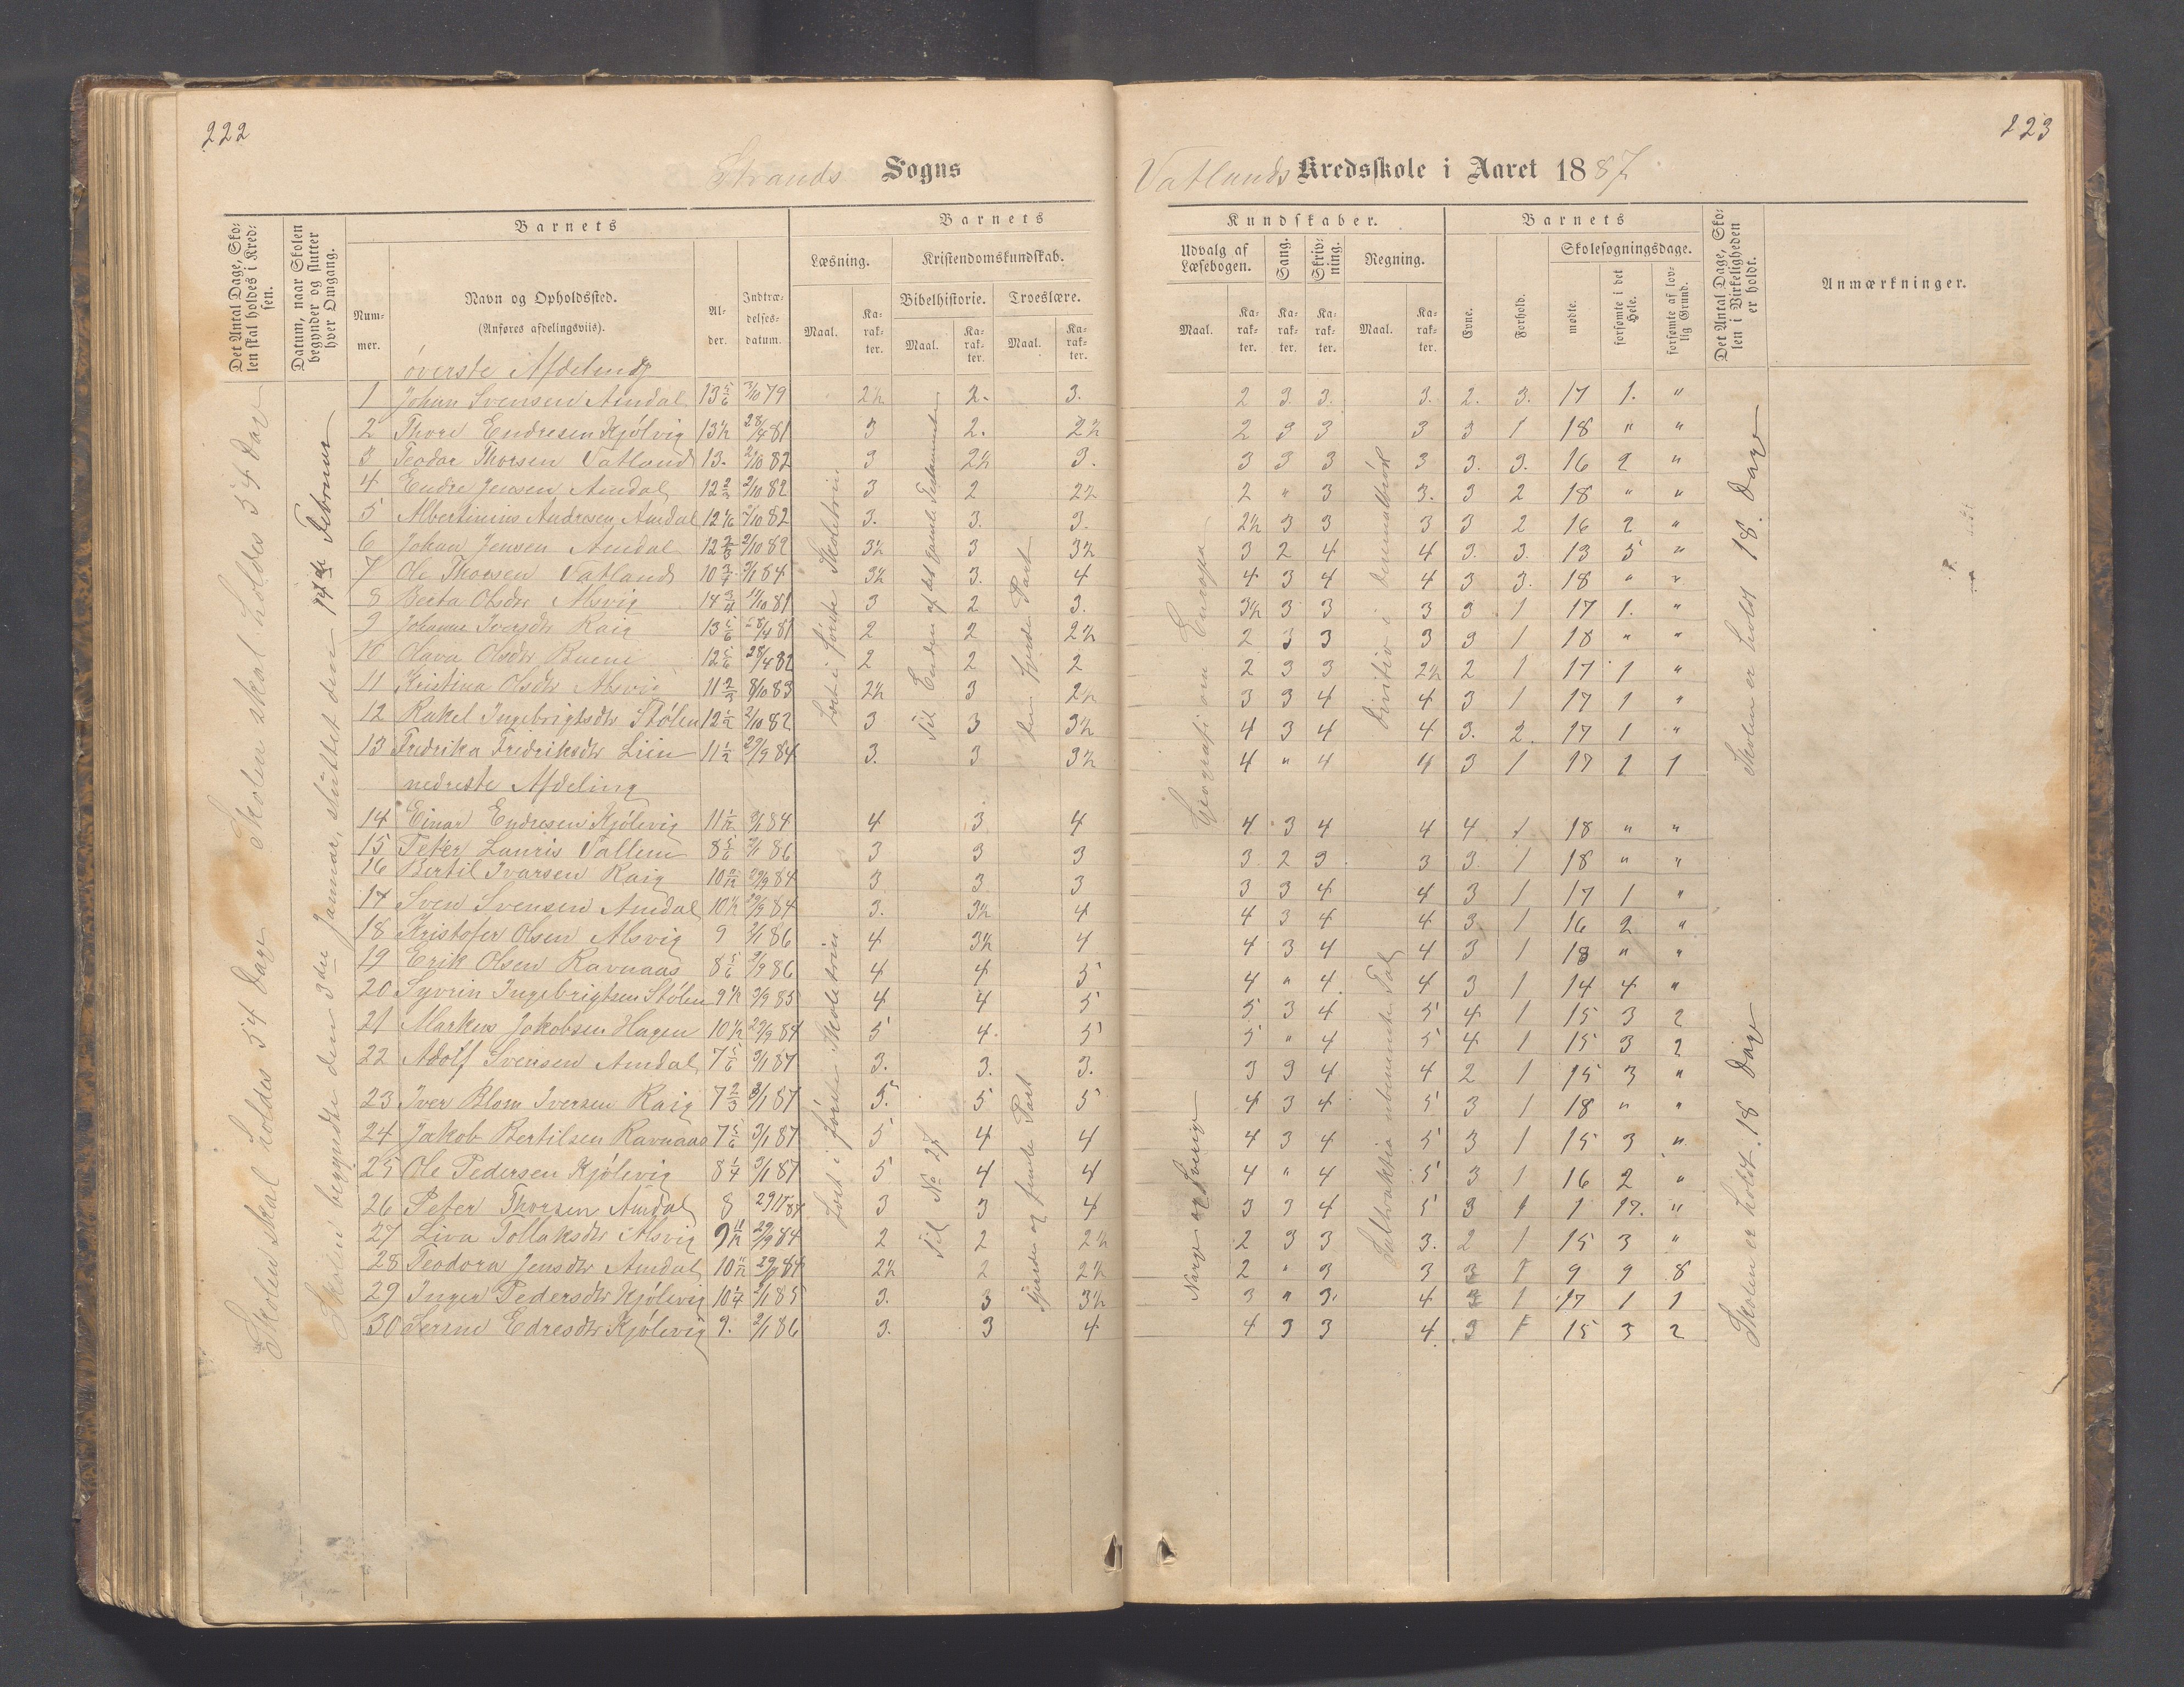 222
223
Strands Sogns
Vatlands Kredsskole i Aaret 1887.
Det Antal Dage, Skolen skal holdes i Kredsen.
Datum, naar Skolen begynder og slutter hver Omgang.
Barnets
Nummer.
Navn og Opholdssted.
(Anføres afdelingsviis).
Alder.
Indtrædelsesdatum.
Barnets
Læsning.
Kristendomskundskab.
Bibelhistorie.
Troeslære.
Maal.
Karakter.
Maal.
Karakter.
Maal.
Karakter.
Kundskaber.
Udvalg af Læsebogen.
Sang.
Skrivning.
Regning.
Maal.
Karakter.
Karakter.
Karakter.
Maal.
Karakter.
Barnets
Evne.
Forhold.
Skolesøgningsdage.
mødte.
forsømte i det Hele.
forsømte af lovlig Grund.
Det Antal Dage, Skolen i Virkeligheden er holdt.
Anmærkninger.
Skolen skal holdes 54 Dage
Skolen skal holdes 54 Dage
Skolen begyndte den 3die Januar, sluttet den 14de Februar
øverste Afdeling
1 Johan Svensen Amdal 13 5/6 3/10 79 2½ 2. 3. 2 3 3. 3. 2. 3. 17 1. "
2 Thore Endresen Kjölvig 13½ 28/4 81 3 2. 2½ 2 3 3 3 3 1 18 " "
3 Teodor Thorsen Vatland 13. 2/10 82 3 2½ 3. 3 3 3 3 3. 3. 16 2 "
4 Endre Jensen Amdal 12 2/3 2/10 82 3 2 2½ 2 " 3 3. 3 2 18 " "
5 Albertinius Andresen Amdal 12 1/6 2/10 82 3. 3. 3. 2½ 3 3 3 3 2 16 2 "
6 Johan Jensen Amdal 12 2/3 2/10 82 3½ 3 3½ 3 2 4 4 3. 3. 13 5 "
7 Ole Thorsen Vatland 10 3/4 3/1 84 3½ 3. 4 4 3 4 4 3 3. 18 " "
8 Berta Olsdtr Alsvig 14 3/4 11/10 81 3 2 3. 3½ 3 3 3 3 1 17 1. "
9 Johanne Iversdtr Raig 13 5/6 28/4 81 2 2 2½ 2 3 3 3 3 1 18 " "
10 Olava Olsdtr Bueni 12 5/6 28/4 82 2 2 2 2 3 3 2½ 2 1 17 1 "
11 Kristina Olsdtr Alsvig 11 2/3 8/10 83 2½ 3 2½ 3 3 4 4 3 1 17 1 "
12 Rakel Ingebrigtsdtr Stølen 12½ 2/10 82 3 3 3½ 4 3 4 4 3. 2. 17 1 "
13 Fredrika Fredriksdtr Liin 11½ 29/9 84 3. 3 3½ 4 " 4 4 3 1 17 1 1
nedreste Afdeling
14 Einar Endresen Kjölevig 11 1/12 3/1 84 4 3 4 4 3 4 4 4 1 18 " "
15 Peter Lauris Vallem 8 5/6 2/1 86 3 3 3 3 2 3 3 3 1 18 " "
16 Bertil Ivarsen Raig 29/9 84 3 3 3 3 3 4 4 3 1 17 1 "
17 Sven Svensen Amdal 10½ 29/9 84 3. 3½ 4 4 3 4 4 3. 1 16 2 "
18 Kristofer Olsen Alsvig 9 2/1 86 4 3½ 4 4 3 4 4 3 1 18 " "
19 Erik Olsen Ravnaas 8 5/6 2/9 86 4 4 5 4 " 4 4 3 1 14 4 "
20 Syvrin Ingebrigtsen Stølen 9½ 3/9 85 4 4 5 5 3 4 5 4 1 15 3 2
21 Markus Jakobsen Hagen 10½ 29/9 84 5 4. 5 5 " 4 5 4 1 15 3 2
22 Adolf Svensen Amdal 7 5/6 3/1 87 3. 3. 3. 3 3 4 4 2 1 15 3 "
23 Iver Blom Iversen Raig 7 2/3 3/1 87 5. 5 5 4 3 4 5 3 1 18 " "
24 Jakob Bertilsen Ravnaas 7 5/6 3/1 87 5 4 4 4 3 4 5 3 1 15 3 "
25 Ole Pedersen Kjölevig 8 1/4 3/1 87 5 4 4 4 " 4 5 3 1 16 2 "
26 Peter Thorsen Amdal 8 3 3 4 3 3 4 5 3 1 1 17. "
27 Liva Tollaksdtr Alsvig 9 11/12 29/9 84 2 2 2½ 2 3 3 3. 2 1 15 3 "
28 Teodora Jensdtr Amdal 2½ 2 2½ 2 " 3 3 3 1 9 9 8
29 Inger Pedersdtr Kjölevig 10 1/4 2/1 85 3. 3 3½ 3 " 3. 4 3 1 17 1 1
30 Serine Edresdtr Kjölevig 9. 2/1 86 3. 3 4 4 3 3 4 3 1 15 3 2
Læst i første Skoletrin
Til Enden af det gamle Testamente
den fjerde Part
Geografi om Europa
Division i
Skolen er holdt 18. Dage
Læst i første Skoletrin
Til No 27
fjerde og femte Part
Norge og Sverig
Subtraktion ubenævnte Tal
Skolen er holdt. 18 Dage